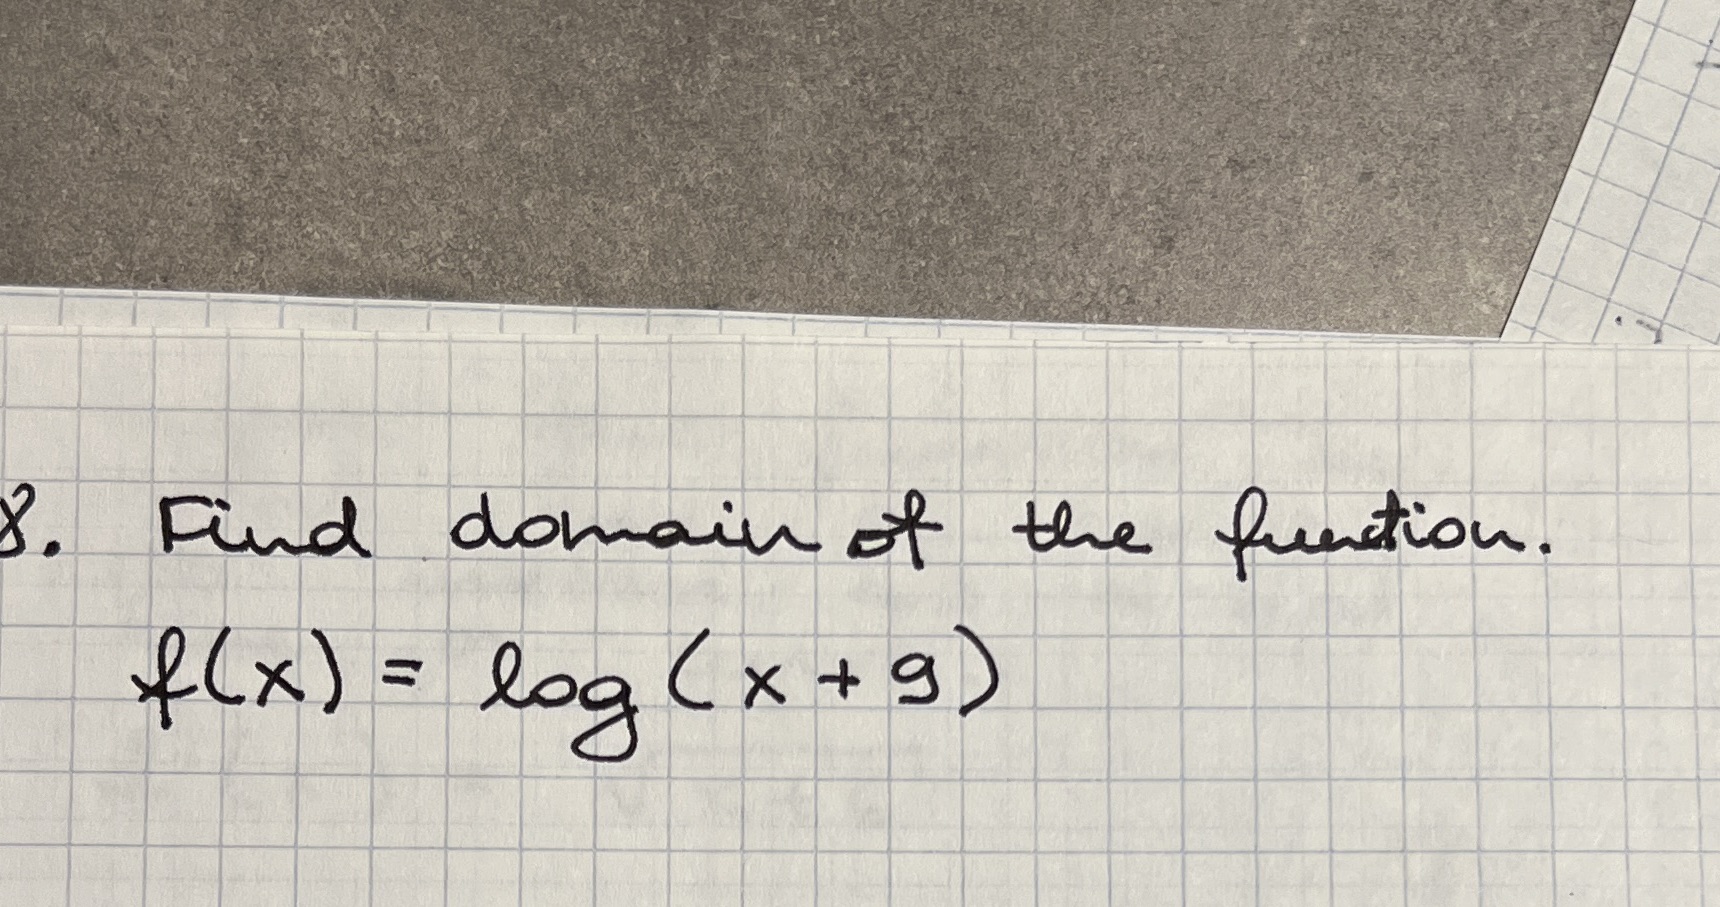 8. Find domain of the function.
f(x) = log (x + 9)